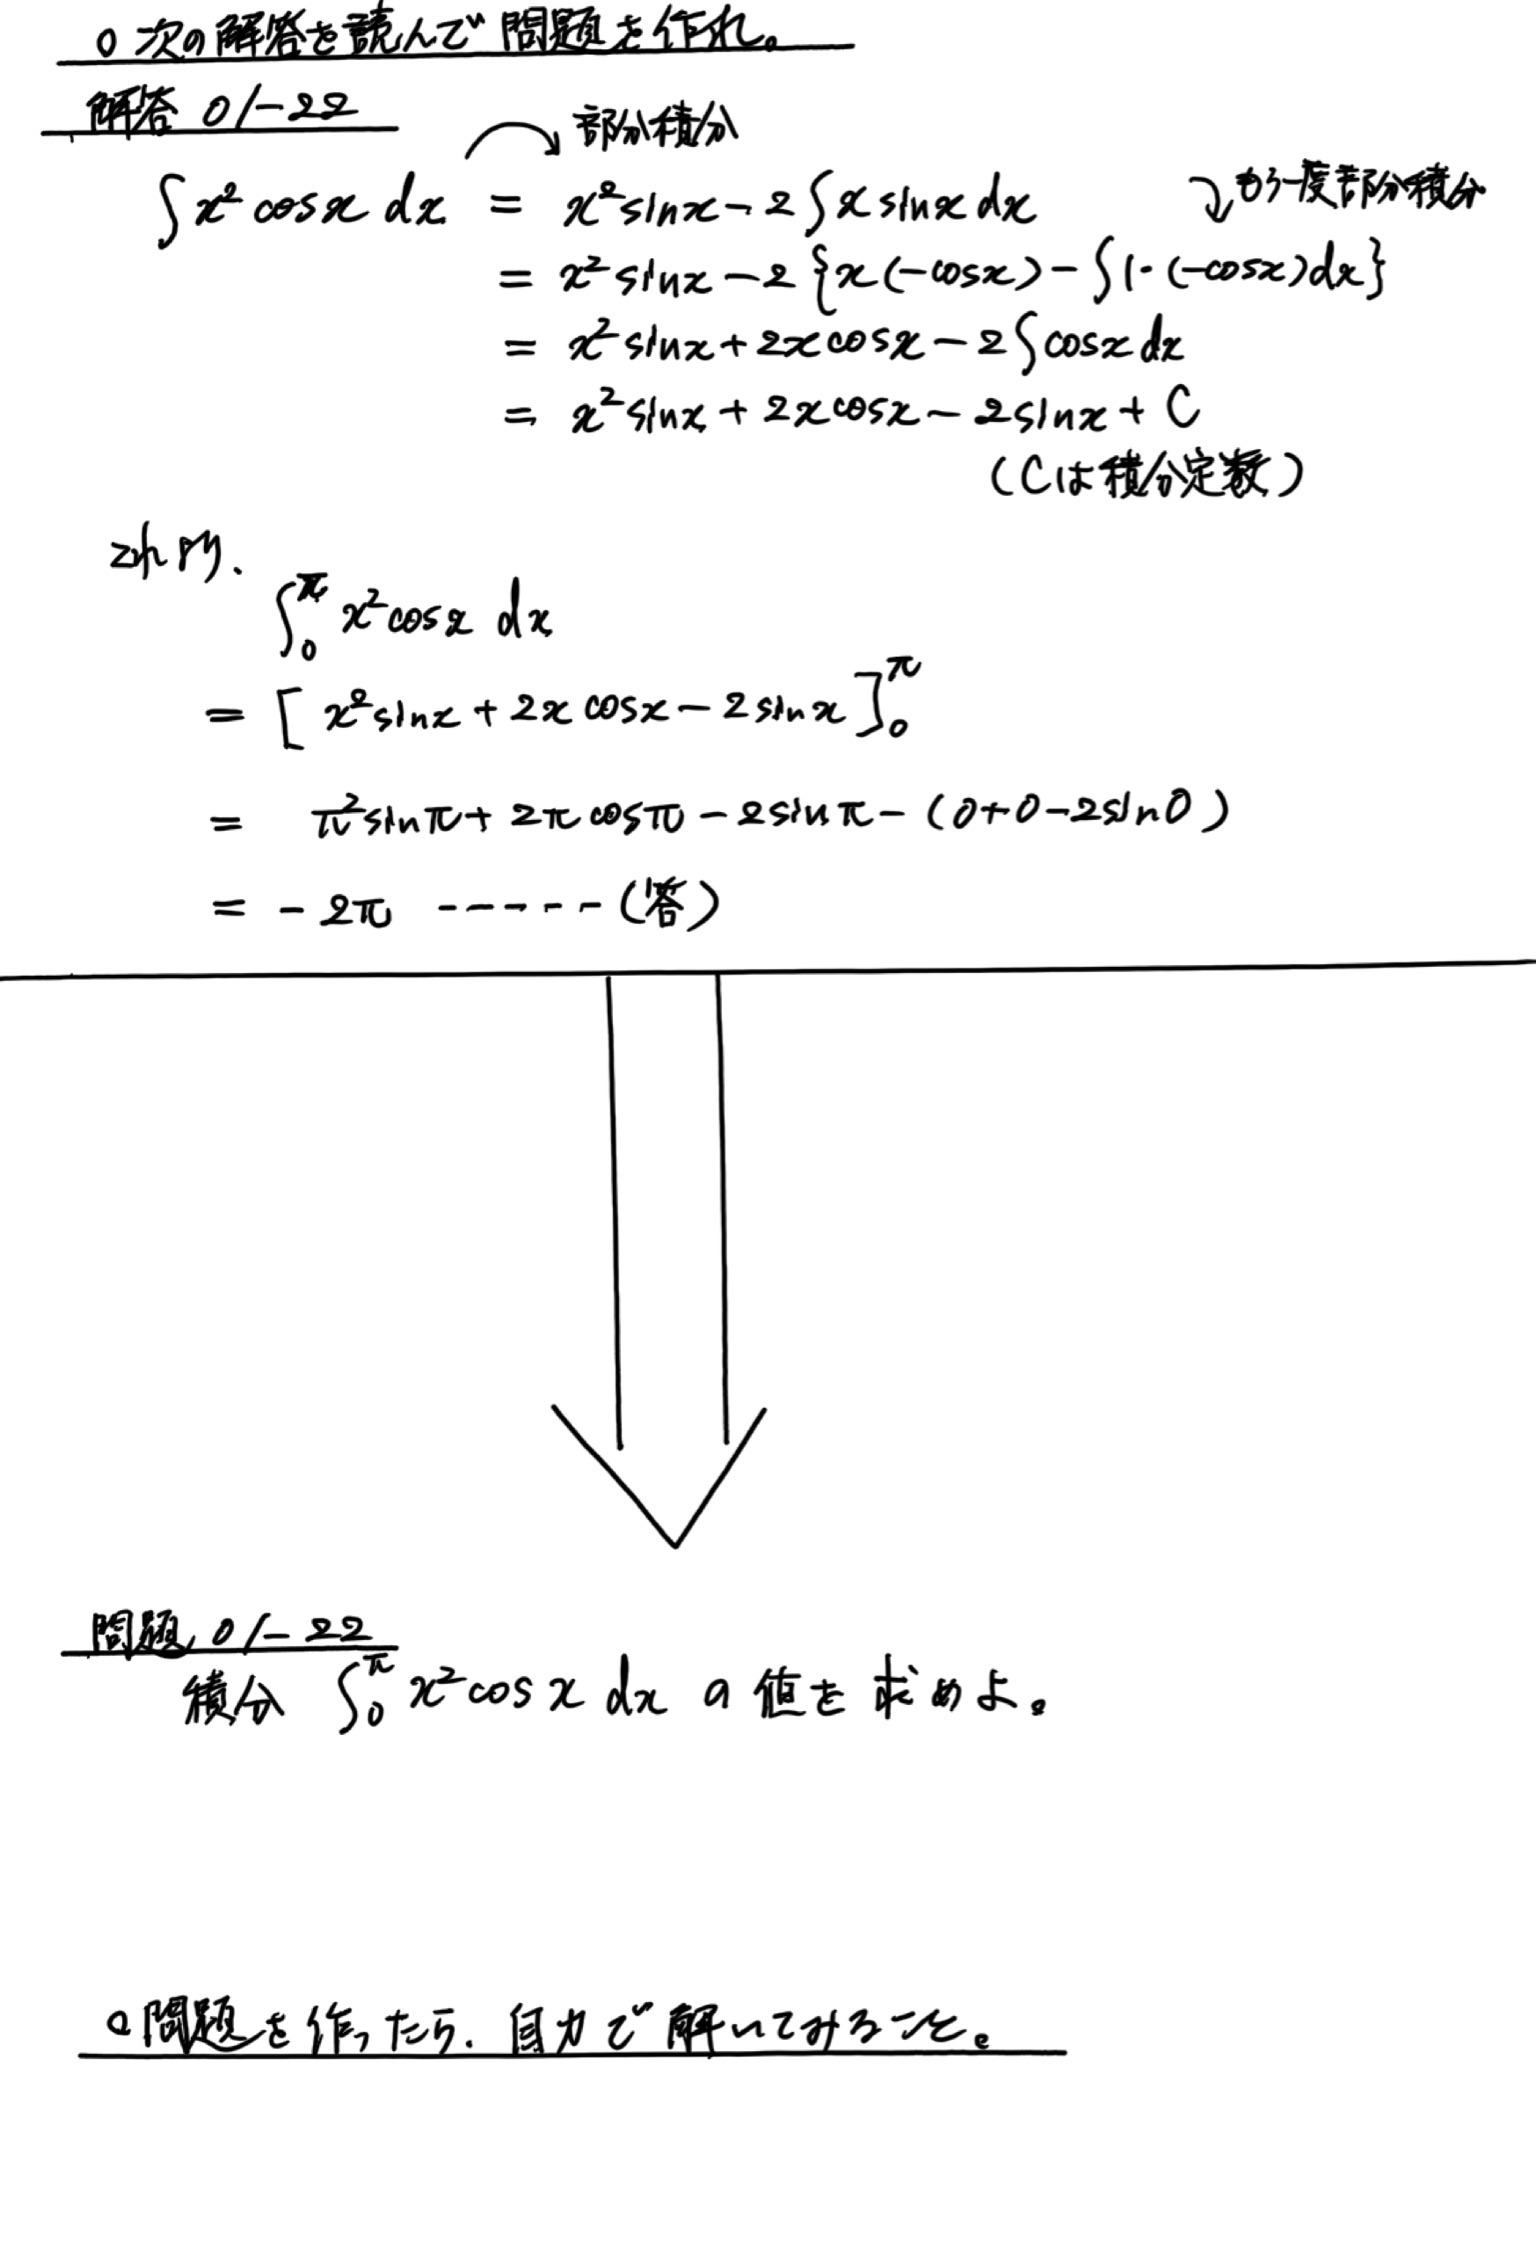 ○次の解答を読んで問題を作れ。
解答 01-22
部分積分
∫x²cosx dx = x²sinx-2∫x sinx dx もう一度部分積分
= x²sinx-2{x(-cosx)-∫1・(-cosx)dx}
= x²sinx+2xcosx-2∫cosx dx
= x²sinx+2xcosx-2sinx+C
(Cは積分定数)
これより、
∫₀^π x²cosx dx
= [x²sinx+2x cosx-2sinx]₀^π
= π²sinπ+2πcosπ-2sinπ-(0+0-2sin0)
= -2π -----(答)
問題 01-22
積分 ∫₀^π x²cosx dx の値を求めよ。
○問題を作ったら、自力で解いてみること。